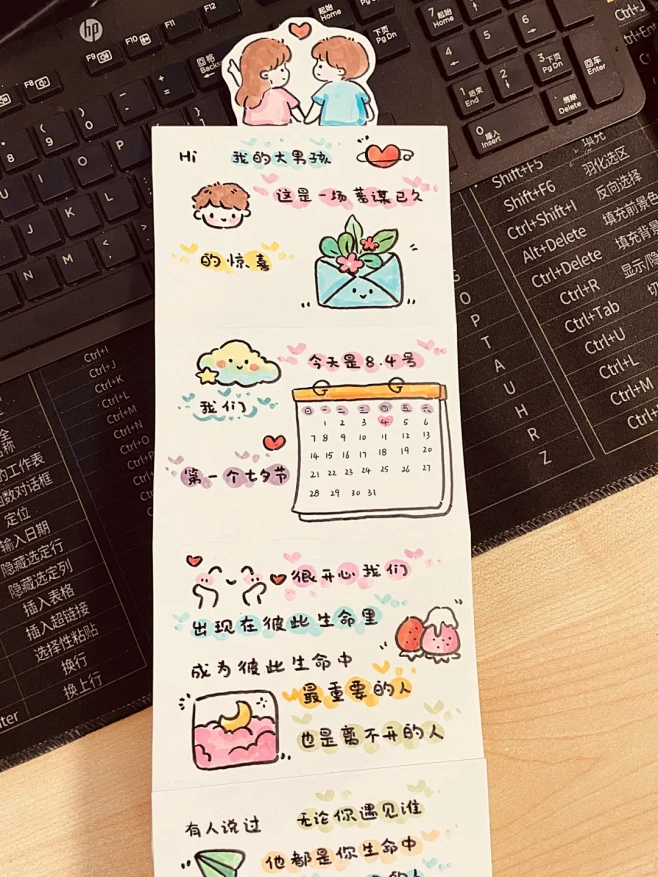 hp
F8
F9
F10
F11
F12
起始
Home
下页
Pg Dn
结束
End
插入
Insert
删除
Delete
回车
Enter
Hi 我的大男孩
这是一场蓄谋已久
的惊喜
今天是8.4号
我们
第一个七夕节
日 一 二 三 四 五 六
1 2 3 4 5 6
7 8 9 10 11 12 13
14 15 16 17 18 19 20
21 22 23 24 25 26 27
28 29 30 31
很开心我们
出现在彼此生命里
成为彼此生命中
最重要的人
也是离不开的人
有人说过 无论你遇见谁
他都是你生命中
的人
Shift+F5 填充
Shift+F6 羽化选区
Ctrl+Shift+I 反向选择
Alt+Delete 填充前景色
Ctrl+Delete 填充背景
Ctrl+R 显示/隐
Ctrl+Tab 切
Ctrl+U
Ctrl+L
Ctrl+M
Ctrl+C
Ctrl+I
Ctrl+J
Ctrl+K
Ctrl+L
Ctrl+M
Ctrl+N
Ctrl+O
O
P
T
A
U
H
R
Z
的工作表
函数对话框
定位
输入日期
隐藏选定行
隐藏选定列
插入表格
插入超链接
选择性粘贴
换行
换上行